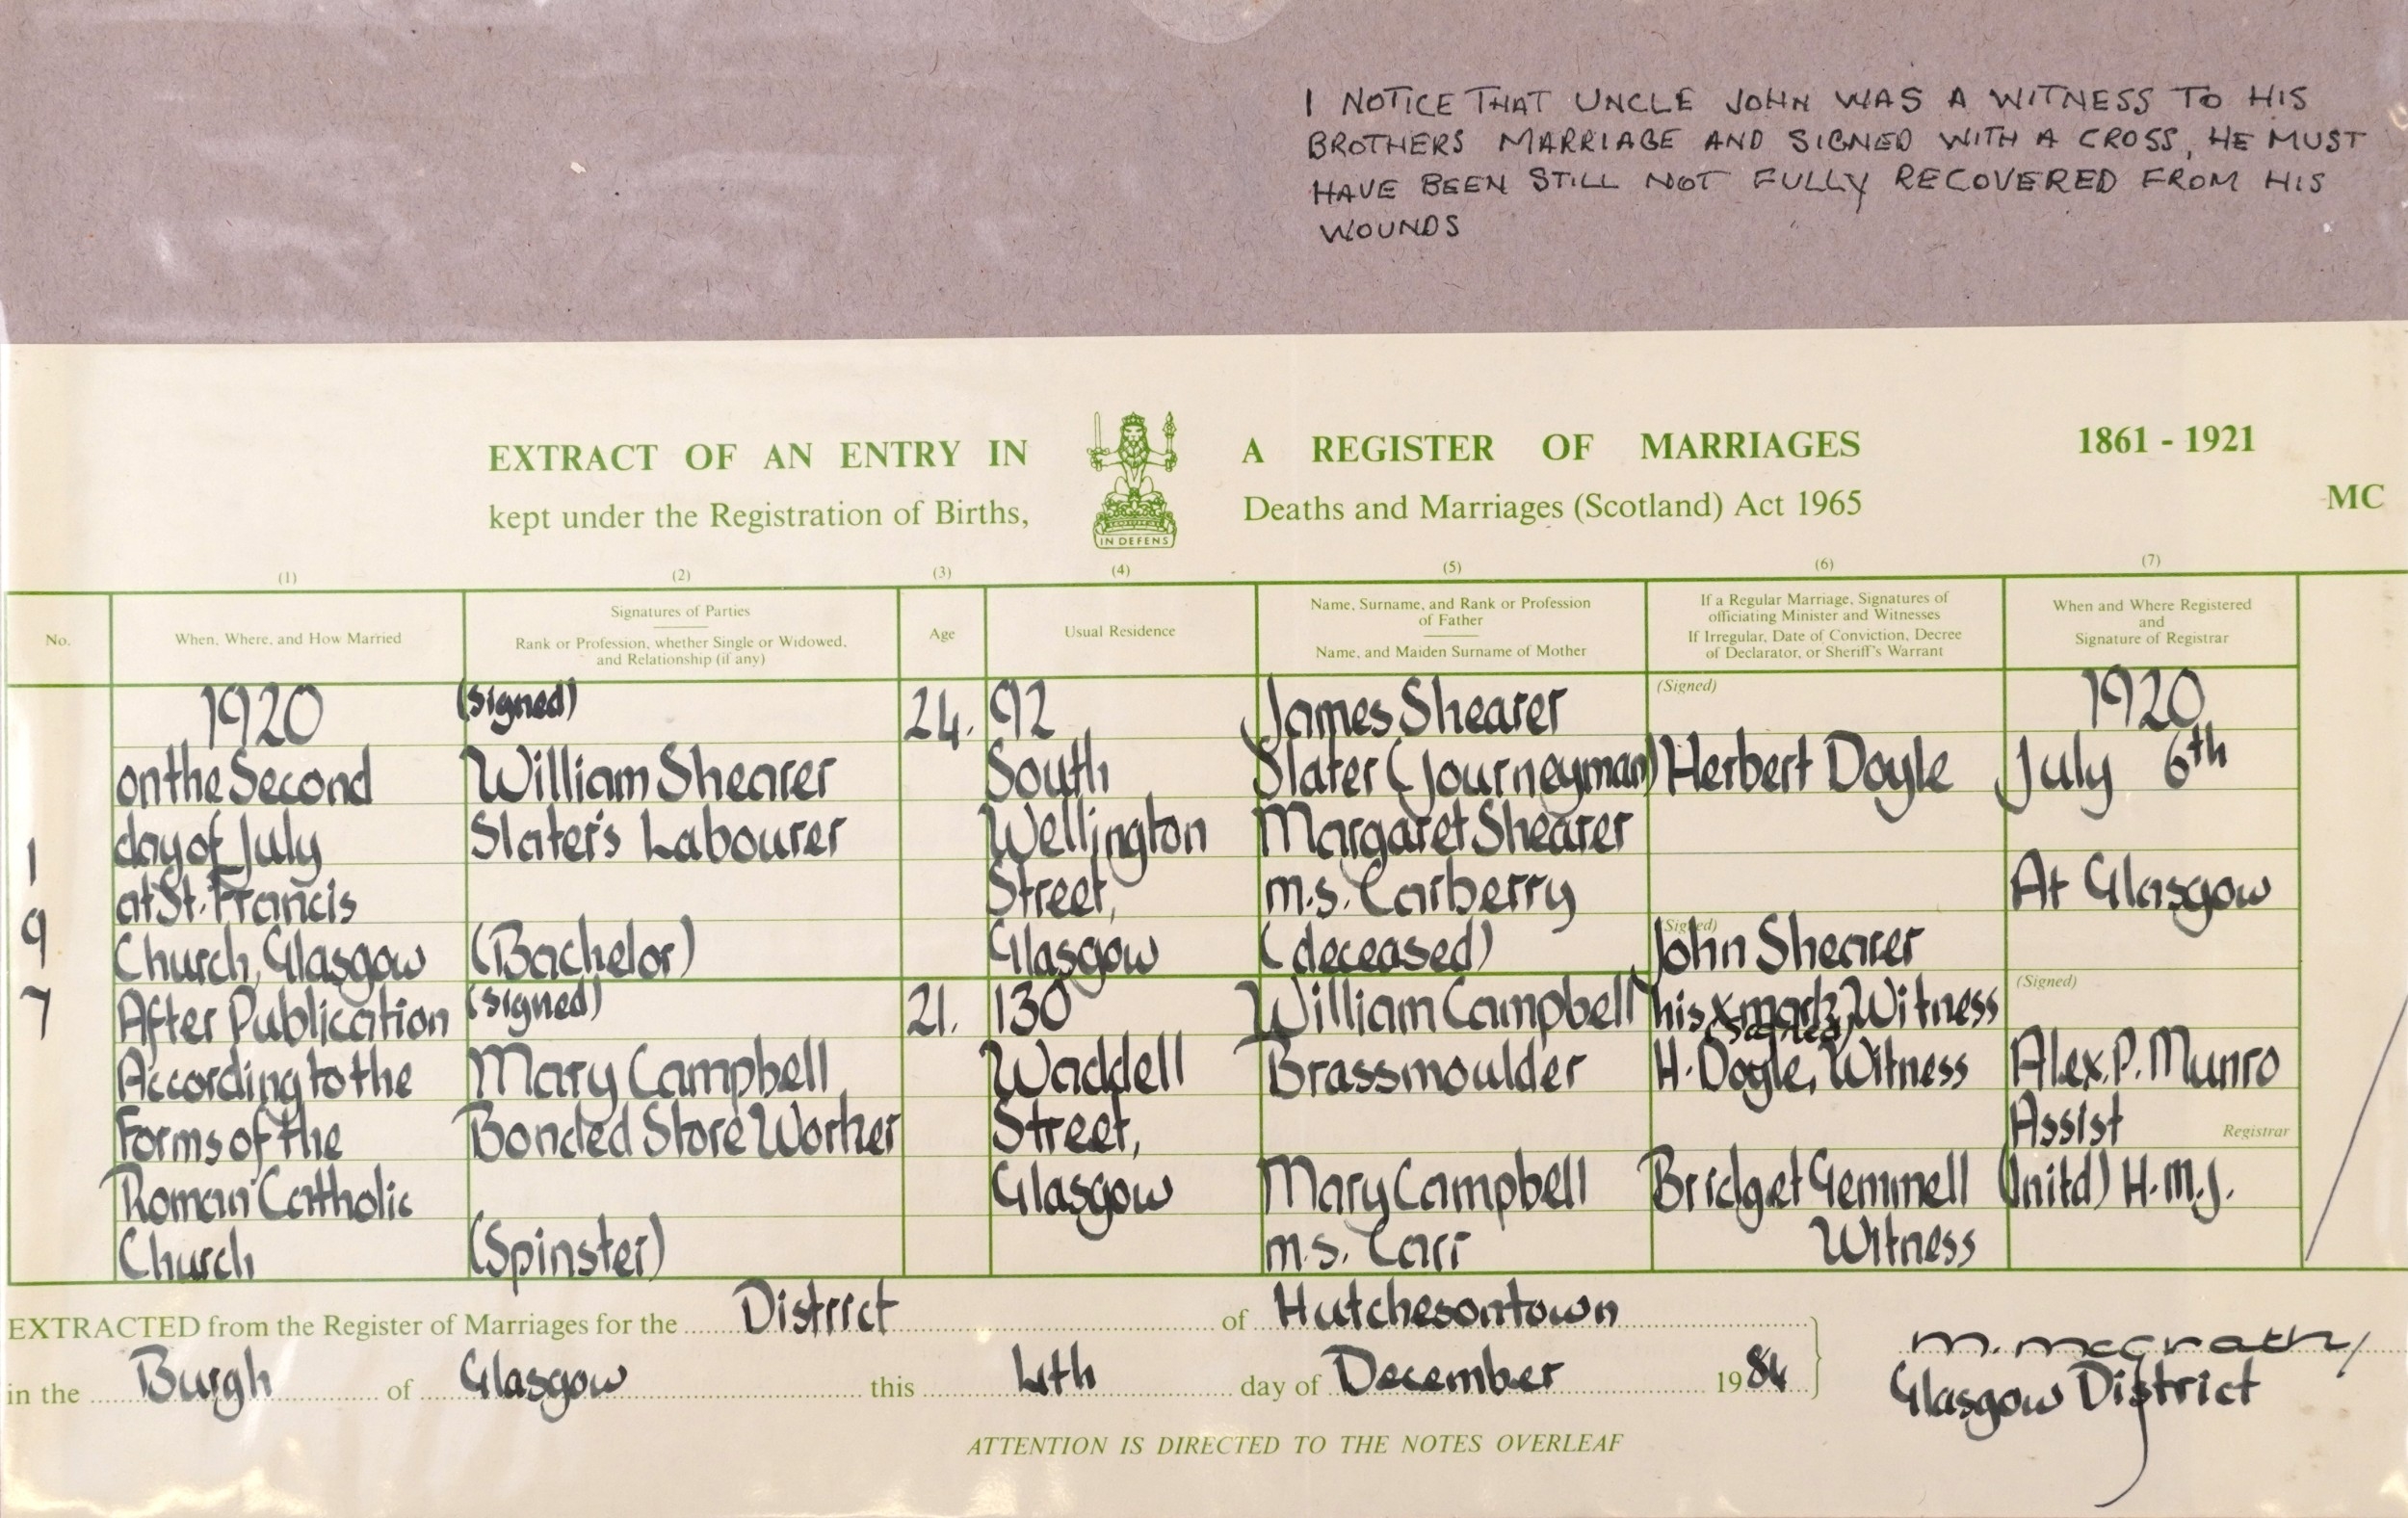 I NOTICE THAT UNCLE JOHN WAS A WITNESS TO HIS
BROTHERS MARRIAGE AND SIGNED WITH A CROSS, HE MUST
HAVE BEEN STILL NOT FULLY RECOVERED FROM HIS
WOUNDS
EXTRACT OF AN ENTRY IN A REGISTER OF MARRIAGES 1861 - 1921
kept under the Registration of Births, Deaths and Marriages (Scotland) Act 1965
MC
IN DEFENS
(1) (2) (3) (4) (5) (6) (7)
No.
When, Where, and How Married
Signatures of Parties
Rank or Profession, whether Single or Widowed,
and Relationship (if any)
Age
Usual Residence
Name, Surname, and Rank or Profession
of Father
Name, and Maiden Surname of Mother
If a Regular Marriage, Signatures of
officiating Minister and Witnesses
If Irregular, Date of Conviction, Decree
of Declarator, or Sheriff's Warrant
When and Where Registered
and
Signature of Registrar
1
9
7
1920
on the Second
day of July
at St. Francis
Church, Glasgow
After Publication
According to the
Forms of the
Roman Catholic
Church
(Signed)
William Shearer
Slater's Labourer
(Bachelor)
(Signed)
Mary Campbell
Bonded Store Worker
(Spinster)
24.
21.
92
South
Wellington
Street,
Glasgow
130
Waddell
Street,
Glasgow
James Shearer
Slater (Journeyman)
Margaret Shearer
m.s. Carberry
(deceased)
William Campbell
Brassmoulder
Mary Campbell
m.s. Carr
(Signed)
Herbert Doyle
(Signed)
John Shearer
his x mark, Witness
(Signed)
H. Doyle, Witness
Bridget Gemmell
Witness
1920
July 6th
At Glasgow
(Signed)
Alex. P. Munro
Assist Registrar
(Initd) H.M.J.
EXTRACTED from the Register of Marriages for the District of Hutchesontown
in the Burgh of Glasgow this 4th day of December 1984
M. McGrath
Glasgow District
ATTENTION IS DIRECTED TO THE NOTES OVERLEAF